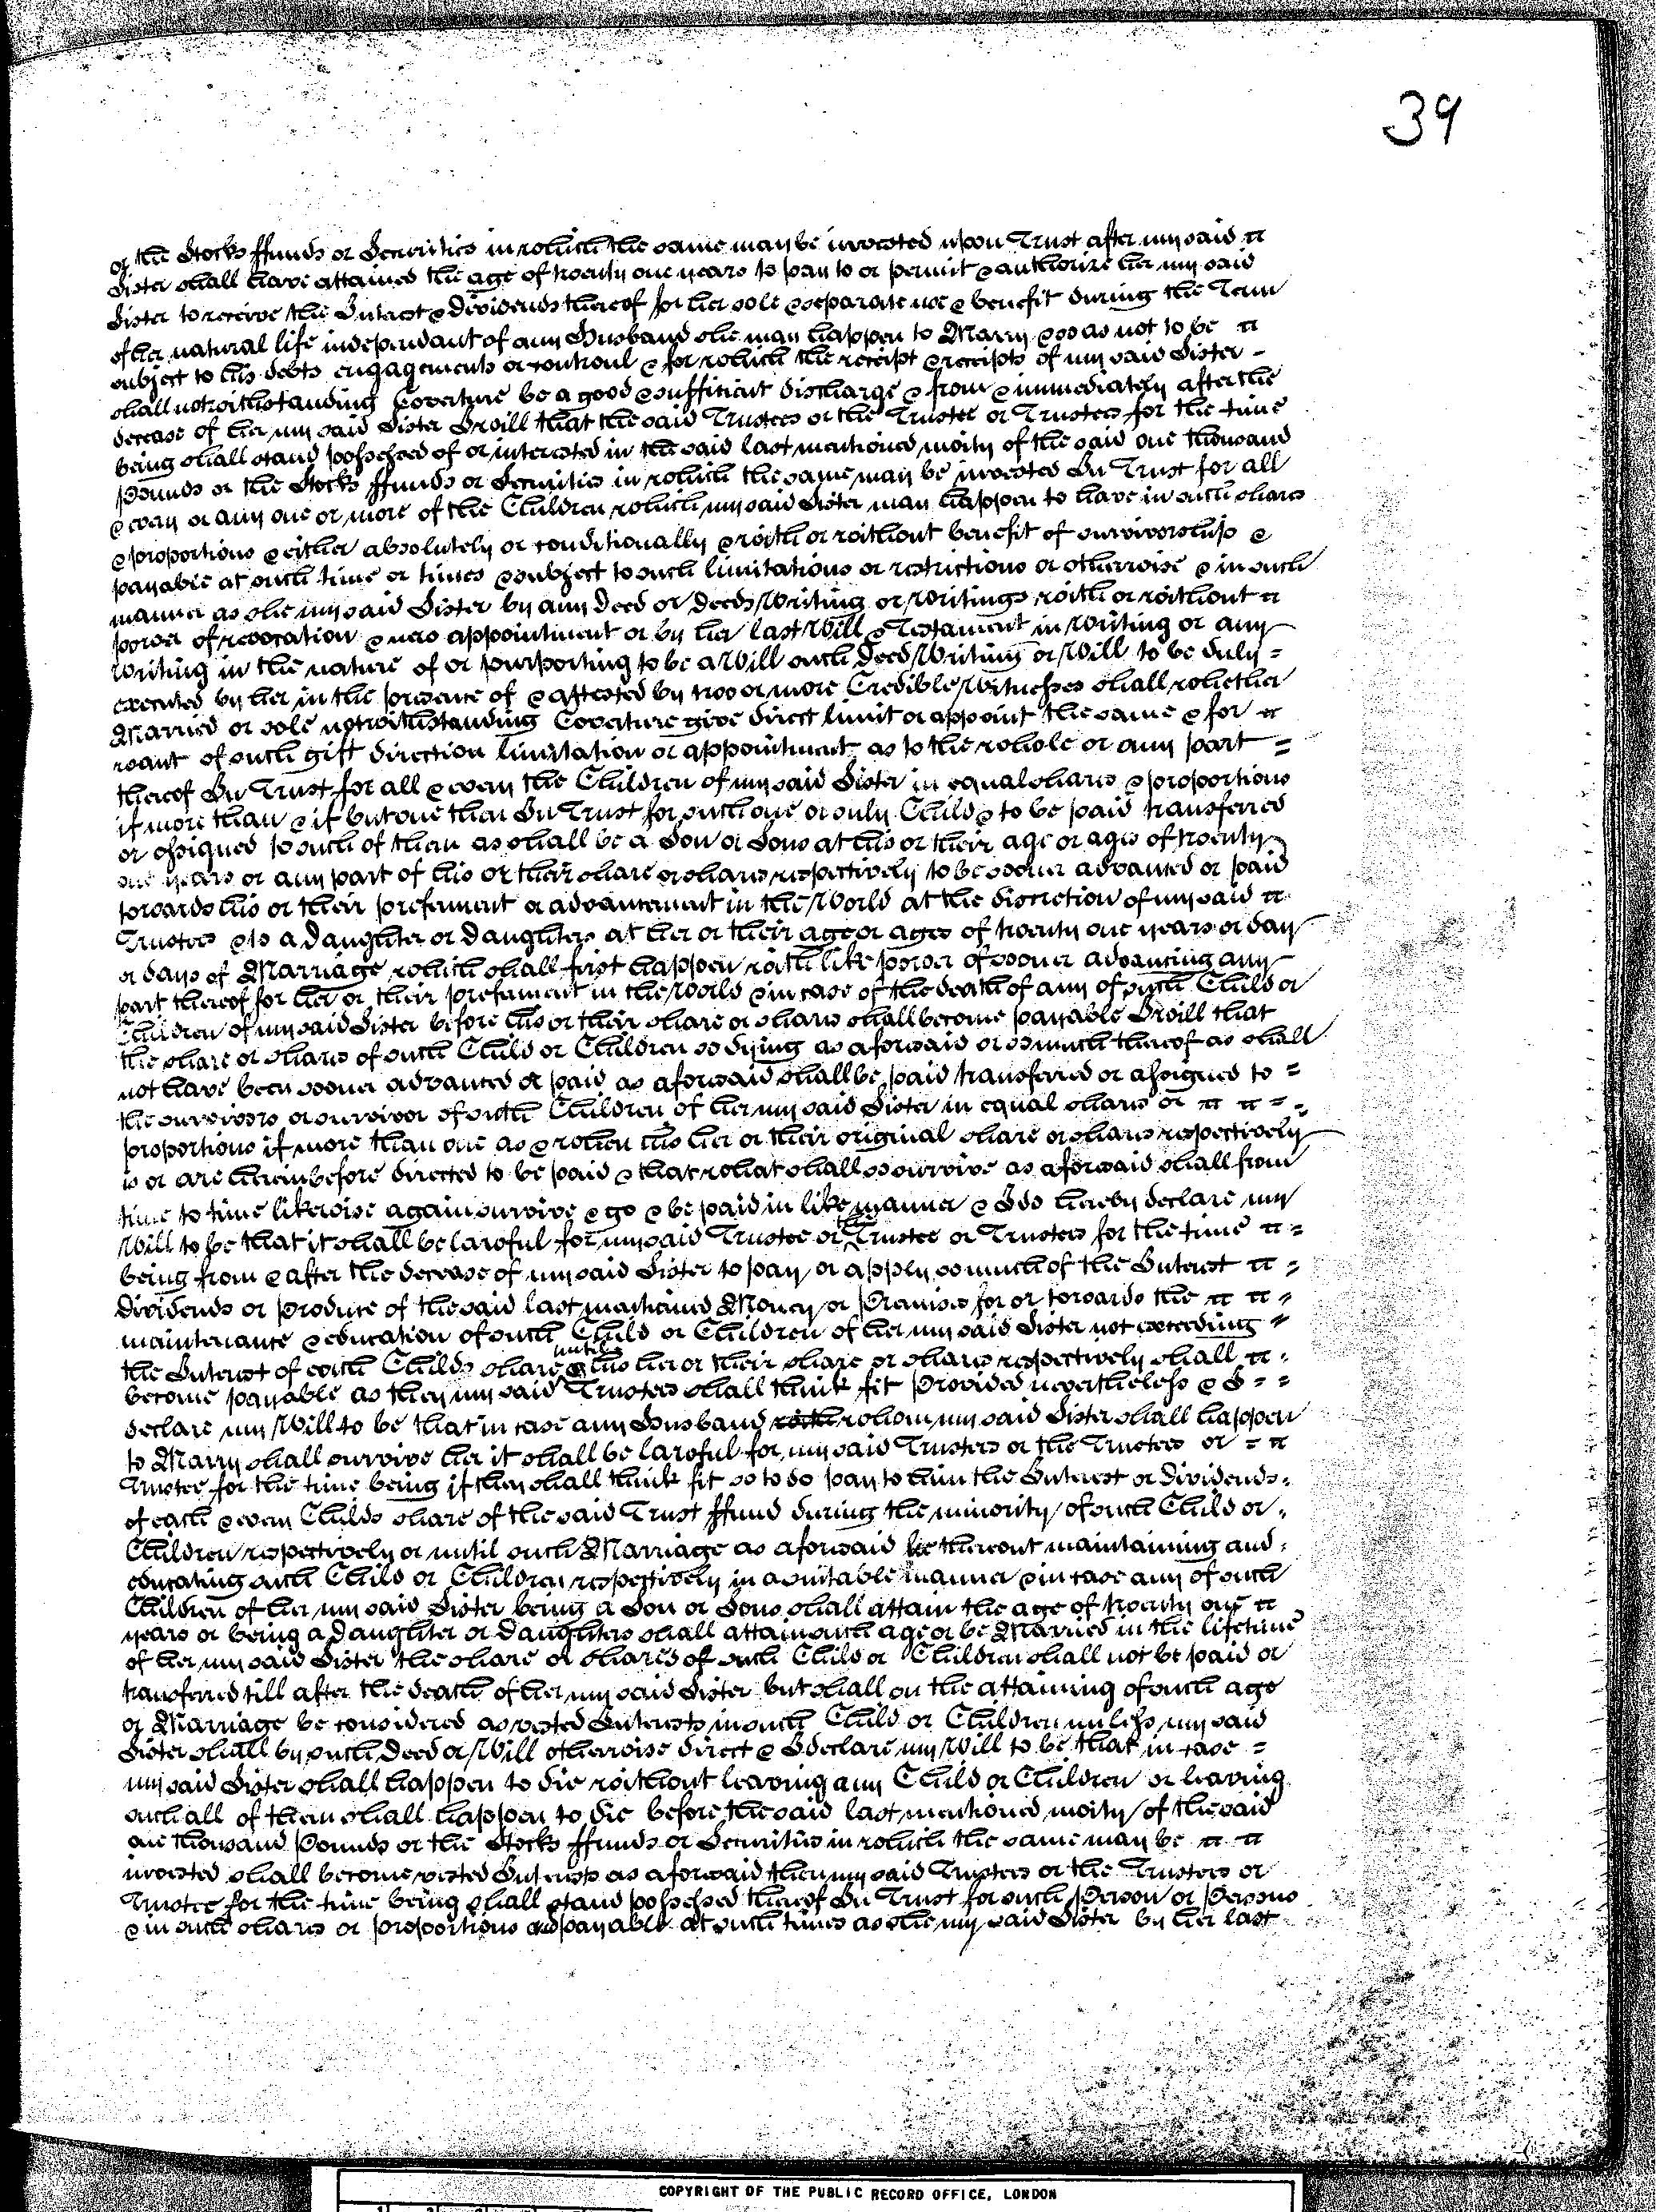 39
or the Stocks ffunds or Securities in which the same may be invested upon Trust after my said
Sister shall have attained the age of twenty one years to pay to or permit & authorize her my said
Sister to receive the Interest & dividends thereof for her sole & separate use & benefit during the Term
of her natural life independant of any Husband she may happen to Marry & so as not to be
subject to his debts engagements or controul & for which the receipt & receipts of my said Sister -
shall notwithstanding Coverture be a good & sufficient discharge & from & immediately after the
decease of her my said Sister I will that the said Trustees or the Trustee or Trustees for the time
being shall stand possessed of or interested in the said last mentioned moity of the said one thousand
pounds or the Stocks ffunds or Securities in which the same may be invested In Trust for all
& every or any one or more of the Children which my said Sister may happen to have in such shares
& proportions & either absolutely or conditionally & with or without benefit of survivorship &
payable at such time or times & subject to such limitations or restrictions or otherwise & in such
manner as she my said Sister by any deed or deeds Writing or Writings with or without
power of revocation & new appointment or by her last Will & Testament in Writing or any
Writing in the nature of or purporting to be a Will such Deed Writing or Will to be duly =
executed by her in the presence of & attested by two or more Credible Witnesses shall whether
Married or sole notwithstanding Coverture give direct limit or appoint the same & for
want of such gift direction limitation or appointment as to the whole or any part =
thereof In Trust for all & every the Children of my said Sister in equal shares & proportions
if more than & if but one then In Trust for such one or only Child & to be paid transferred
or assigned to such of them as shall be a Son or Sons at his or their age or ages of twenty
one years or any part of his or their share or shares respectively to be sooner advanced or paid
towards his or their preferment or advancement in the World at the discretion of my said
Trustees & to a daughter or daughters at her or their age or ages of twenty one years or day
or days of Marriage which shall first happen with like power of sooner advancing any
part thereof for her or their preferment in the World & in case of the death of any of such Child or
Children of my said Sister before his or their share or shares shall become payable I will that
the share or shares of such Child or Children so dying as aforesaid or so much thereof as shall
not have been sooner advanced or paid as aforesaid shall be paid transferred or assigned to =
the survivors or survivor of such Children of her my said Sister in equal shares or = =
proportions if more than one as & when his her or their original share or shares respectively
is or are hereinbefore directed to be paid & that what shall so survive as aforesaid shall from
time to time likewise again survive & go & be paid in like manner & I do hereby declare my
Will to be that it shall be lawful for my said Trustee or the Trustee or Trustees for the time =
being from & after the decease of my said Sister to pay or apply so much of the Interest =
dividends or produce of the said last mentioned Money or Premises for or towards the =
maintenance & education of such Child or Children of her my said Sister not exceeding =
the Interest of each Childs share until his her or their share or shares respectively shall =
become payable as they my said Trustees shall think fit Provided nevertheless & I = =
declare my Will to be that in case any Husband with whom my said Sister shall happen
to Marry shall survive her it shall be lawful for my said Trustees or the Trustees or =
Trustee for the time being if they shall think fit so to do pay to him the Interest or dividends =
of each & every Childs share of the said Trust ffund during the minority of such Child or =
Children respectively or until such Marriage as aforesaid he thereout maintaining and =
educating such Child or Children respectively in a suitable manner & in case any of such
Children of her my said Sister being a Son or Sons shall attain the age of twenty one
years or being a daughter or daughters shall attain such age or be Married in the lifetime
of her my said Sister the share or shares of such Child or Children shall not be paid or
transferred till after the death of her my said Sister but shall on the attaining of such age
or Marriage be considered as vested Interests in such Child or Children unless my said
Sister shall by such Deed or Will otherwise direct & I declare my Will to be that in case =
my said Sister shall happen to die without leaving any Child or Children or leaving
such all of them shall happen to die before the said last mentioned moity of the said
one thousand Pounds or the Stocks ffunds or Securities in which the same may be
invested shall become vested Interests as aforesaid then my said Trustees or the Trustees or
Trustee for the time being shall stand possessed thereof In Trust for such Person or Persons
& in such shares or proportions and payable at such times as she my said Sister by her last
COPYRIGHT OF THE PUBLIC RECORD OFFICE, LONDON